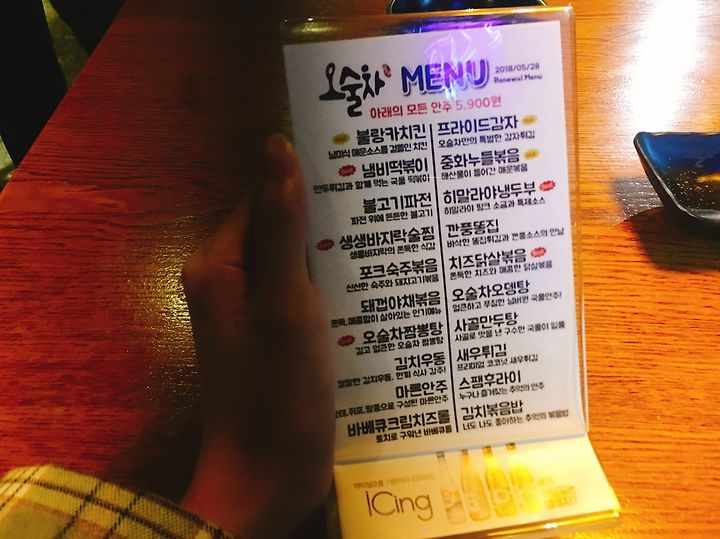 오술차 MENU
2018/05/28
Renewal Menu
아래의 모든 안주 5,900원
불랑카치킨
날마식 매운소스를 곁들인 치킨
냄비떡볶이
만두튀김과 함께 먹는 국물 떡볶이
불고기파전
파전 위에 든든한 불고기
생생바지락술찜
생물바지락의 쫀득한 식감
포크숙주볶음
신선한 숙주와 돼지고기볶음
돼껍야채볶음
쫀득,매콤함이 살아있는 인기메뉴
오술차짬뽕탕
깊고 얼큰한 오술차 짬뽕탕
김치우동
김치우동, 한끼 식사 강추!
마른안주
쥐포, 땅콩으로 구성된 마른안주
바베큐크림치즈롤
토치로 구워낸 바베큐롤
프라이드감자
오술차만의 특별한 감자튀김
중화누들볶음
해산물이 들어간 매운볶음
히말라야냉두부
히말라야 핑크 소금과 특제소스
깐풍똥집
바삭한 똥집튀김과 깐풍소스의 만남
치즈닭살볶음
쫀득한 치즈와 매콤한 닭살볶음
오술차오뎅탕
얼큰하고 푸짐한 넘버원 국물안주!
사골만두탕
사골로 맛을 낸 구수한 국물이 일품
새우튀김
프리미엄 코코넛 새우튀김
스팸후라이
누구나 즐겨찾는 추억의 안주
김치볶음밥
너도 나도 좋아하는 추억의 볶음밥
iCing